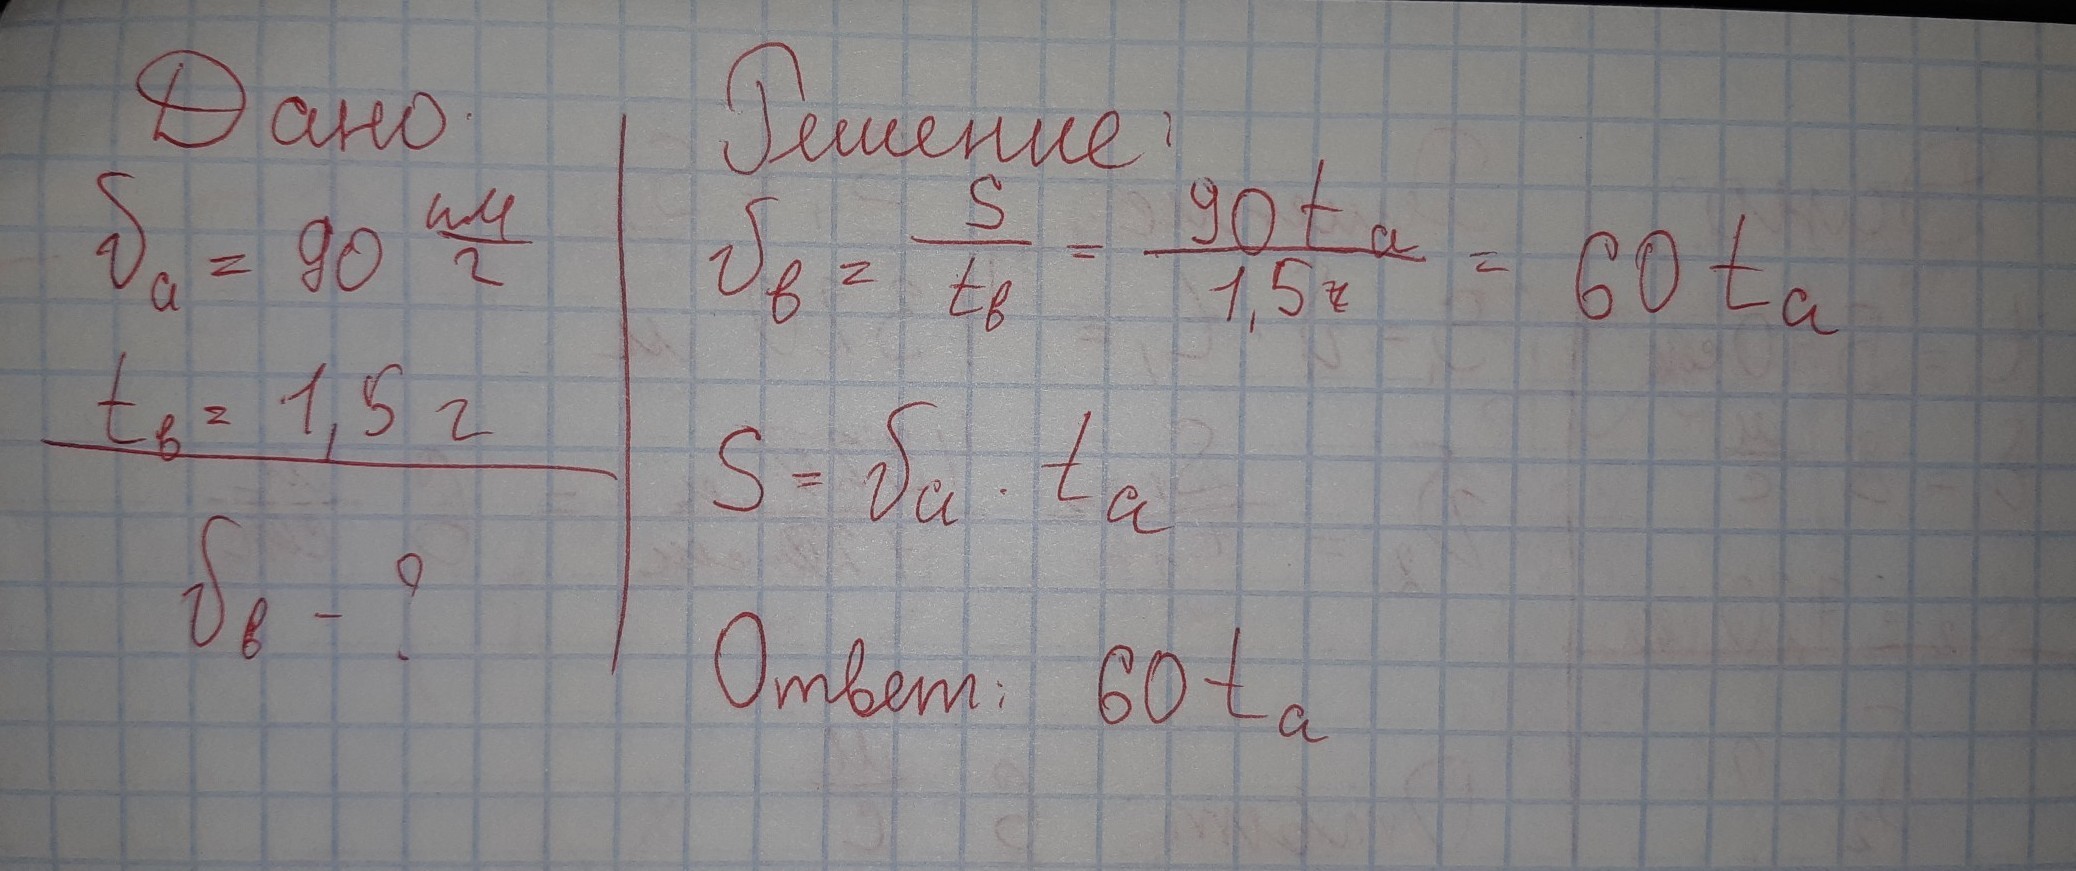 Дано:
υa = 90 км/г
tв = 1,5 г
υв - ?
Решение:
υв = S/tв = 90ta/1,5г = 60ta
S = υa · ta
Ответ: 60ta